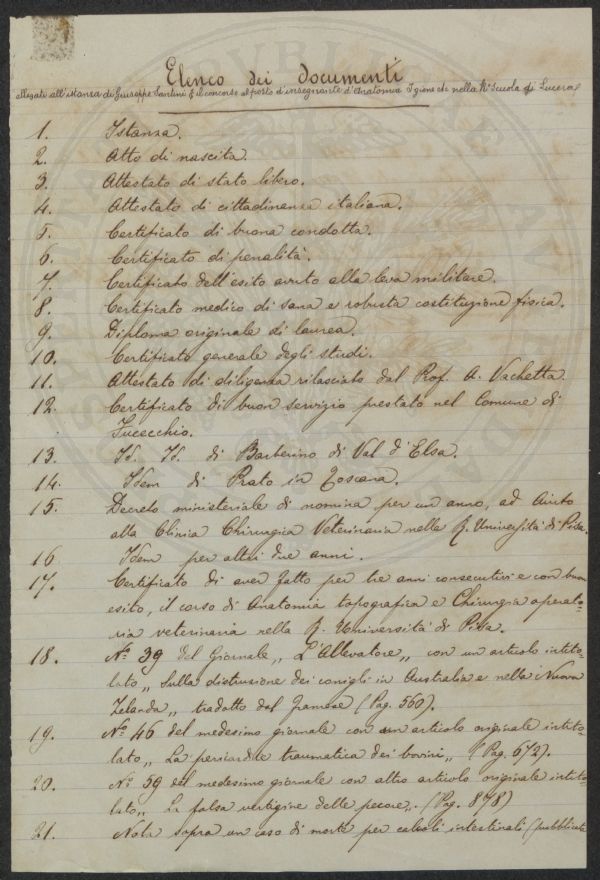 Elenco dei documenti
allegati all'istanza di Giuseppe Santini il concorso al posto d'insegnante d'Anatomia Igiene etc nella R. Scuola di
1. Istanza.
2. Atto di nascita.
3. Attestato di stato libero.
4. Attestato di cittadinanza italiana.
5. Certificato di buona condotta.
6. Certificato di penalità.
7. Certificato dell'esito avuto alla leva militare.
8. Certificato medico di sana e robusta costituzione fisica.
9. Diploma originale di laurea.
10. Certificato generale degli studi.
11. Attestato di diligenza rilasciato dal Prof. A. Vachetta.
12. Certificato di buon servizio prestato nel Comune di
Fucecchio.
13. Id. Id. di Barberino di Val d'Elsa.
14. Idem di Prato in Toscana.
15. Decreto ministeriale di nomina per un anno, ad Aiuto
alla Clinica Chirurgica Veterinaria nella R. Università di Pisa.
16 Idem per altri due anni.
17. Certificato di aver fatto per tre anni consecutivi e con buon
esito, il corso di Anatomia topografica e Chirurgia operato-
ria veterinaria nella R. Università di Pisa.
18. N.° 39 del Giornale „ L'Allevatore „ con un articolo intito-
lato „ Sulla distruzione dei conigli in Australia e nella Nuova
Zelanda „ tradotto dal francese (Pag. 560).
19. N.° 46 del medesimo giornale con un articolo originale intito-
lato „ La pericardite traumatica dei bovini „ (Pag. 672).
20. N.° 59 del medesimo giornale con altro articolo originale intito-
lato „ La falsa vertigine delle pecore „. (Pag. 878)
21. Nota sopra un caso di morte per calcoli intestinali (pubblicata